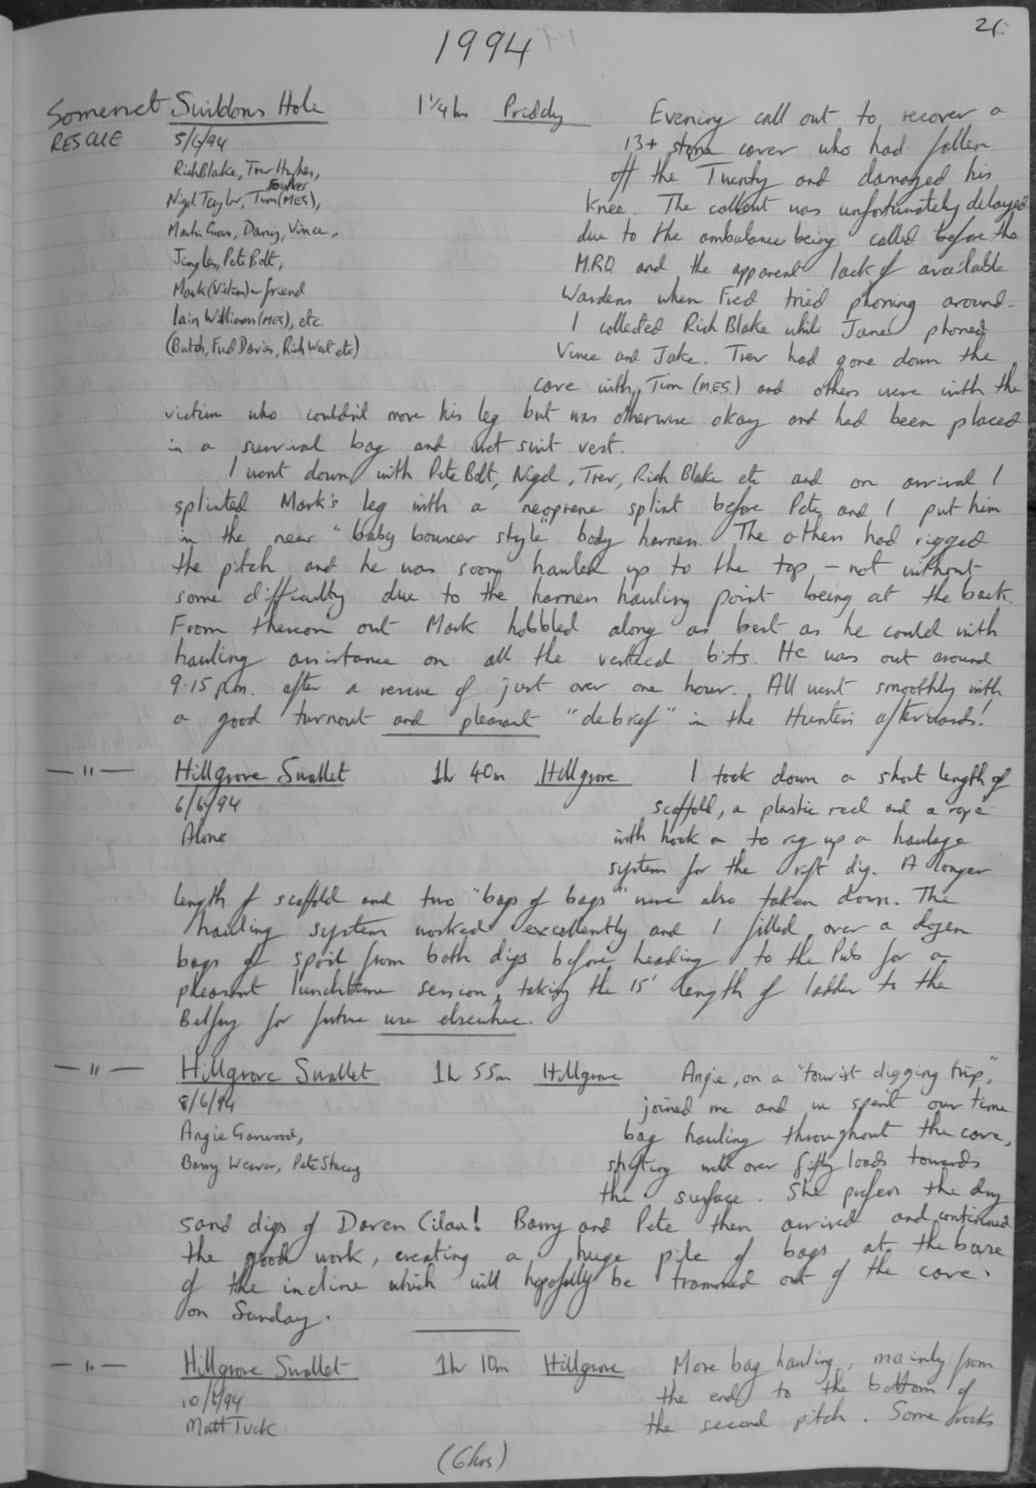 21.
1994
Somerset Swildons Hole 1 1/4 hrs Priddy Evening call out to recover a
RESCUE 5/6/94 13+ stone caver who had fallen
Rich Blake, Trev Hughes, off the Twenty and damaged his
Nigel Taylor, Tim (MES), knee. The callout was unfortunately delayed
Martin Grass, Darcy, Vince, due to the ambulance being called before the
Jingles, Pete Bolt, M.R.O. and the apparent lack of available
Mark (Victim) + friend Wardens when Fred tried phoning around.
Iain Williams (MES), etc. I collected Rich Blake while Jane phoned
(Butch, Fred Davies, Rich West etc) Vince and Jake. Trev had gone down the
cave with Tim (MES) and others were with the
victim who couldn't move his leg but was otherwise okay and had been placed
in a survival bag and wet suit vest.
I went down with Pete Bolt, Nigel, Trev, Rich Blake etc and on arrival I
splinted Mark's leg with a neoprene splint before Pete and I put him
in the new "baby bouncer style" body harness. The others had rigged
the pitch and he was soon hauled up to the top – not without
some difficulty due to the harness hauling point being at the back.
From thereon out Mark hobbled along as best as he could with
hauling assistance on all the vertical bits. He was out around
9.15 p.m. after a rescue of just over one hour. All went smoothly with
a good turnout and pleasant "debrief" in the Hunters afterwards!
— " — Hillgrove Swallet 1h 40m Hillgrove I took down a short length of
6/6/94 scaffold, a plastic reel and a rope
Alone with hook on to rig up a haulage
system for the rift dig. A longer
length of scaffold and two "bags of bags" were also taken down. The
hauling system worked excellently and I filled over a dozen
bags of spoil from both digs before heading to the Pub for a
pleasant lunchtime session, taking the 15' length of ladder to the
Belfry for future use elsewhere.
— " — Hillgrove Swallet 1h 55m Hillgrove Angie, on a "tourist digging trip",
8/6/94 joined me and we spent our time
Angie Garwood, bag hauling throughout the cave,
Barry Weaver, Pete Stacey shifting well over fifty loads towards
the surface. She prefers the dry
sand digs of Daren Cilau! Barry and Pete then arrived and continued
the good work, creating a huge pile of bags at the base
of the incline which will hopefully be trammed out of the cave
on Sunday.
— " — Hillgrove Swallet 1h 10m Hillgrove More bag hauling, mainly from
10/6/94 the end to the bottom of
Matt Tuck the second pitch. Some rocks
(6hrs)